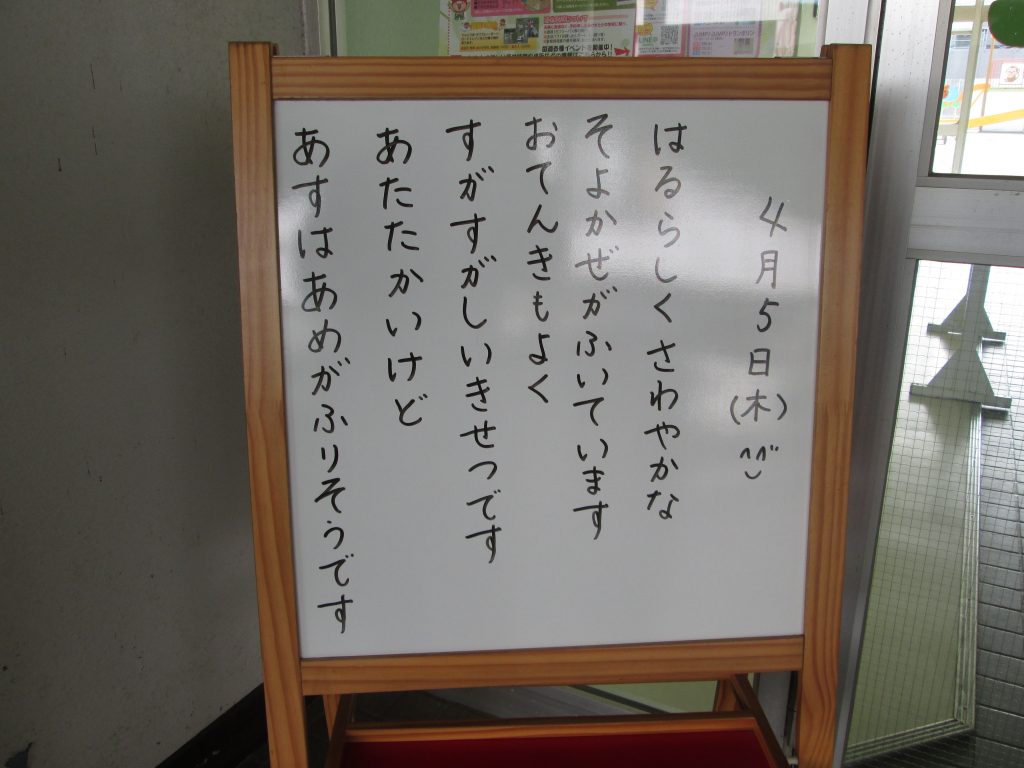 4月5日(木)^^
はるらしくさわやかな
そよかぜがふいています
おてんきもよく
すがすがしいきせつです
あたたかいけど
あすはあめがふりそうです